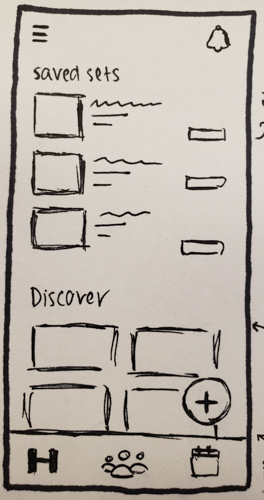 saved sets
Discover